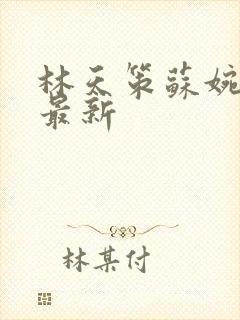 林天策蘇婉
最新
林某付